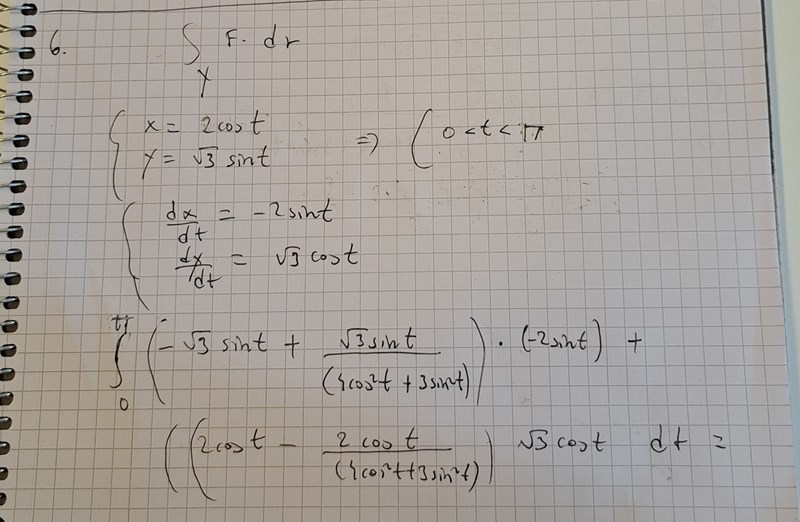 6. ∫γ F. dr
{ x = 2cost
y = √3 sint => ( 0 < t < π
{ dx/dt = -2sint
dy/dt = √3 cost
∫₀^π (- √3 sint + √3sint/(4cos²t + 3sin²t)) · (-2sint) +
((2cost - 2cost/(4cos²t+3sin²t)) √3 cost dt =